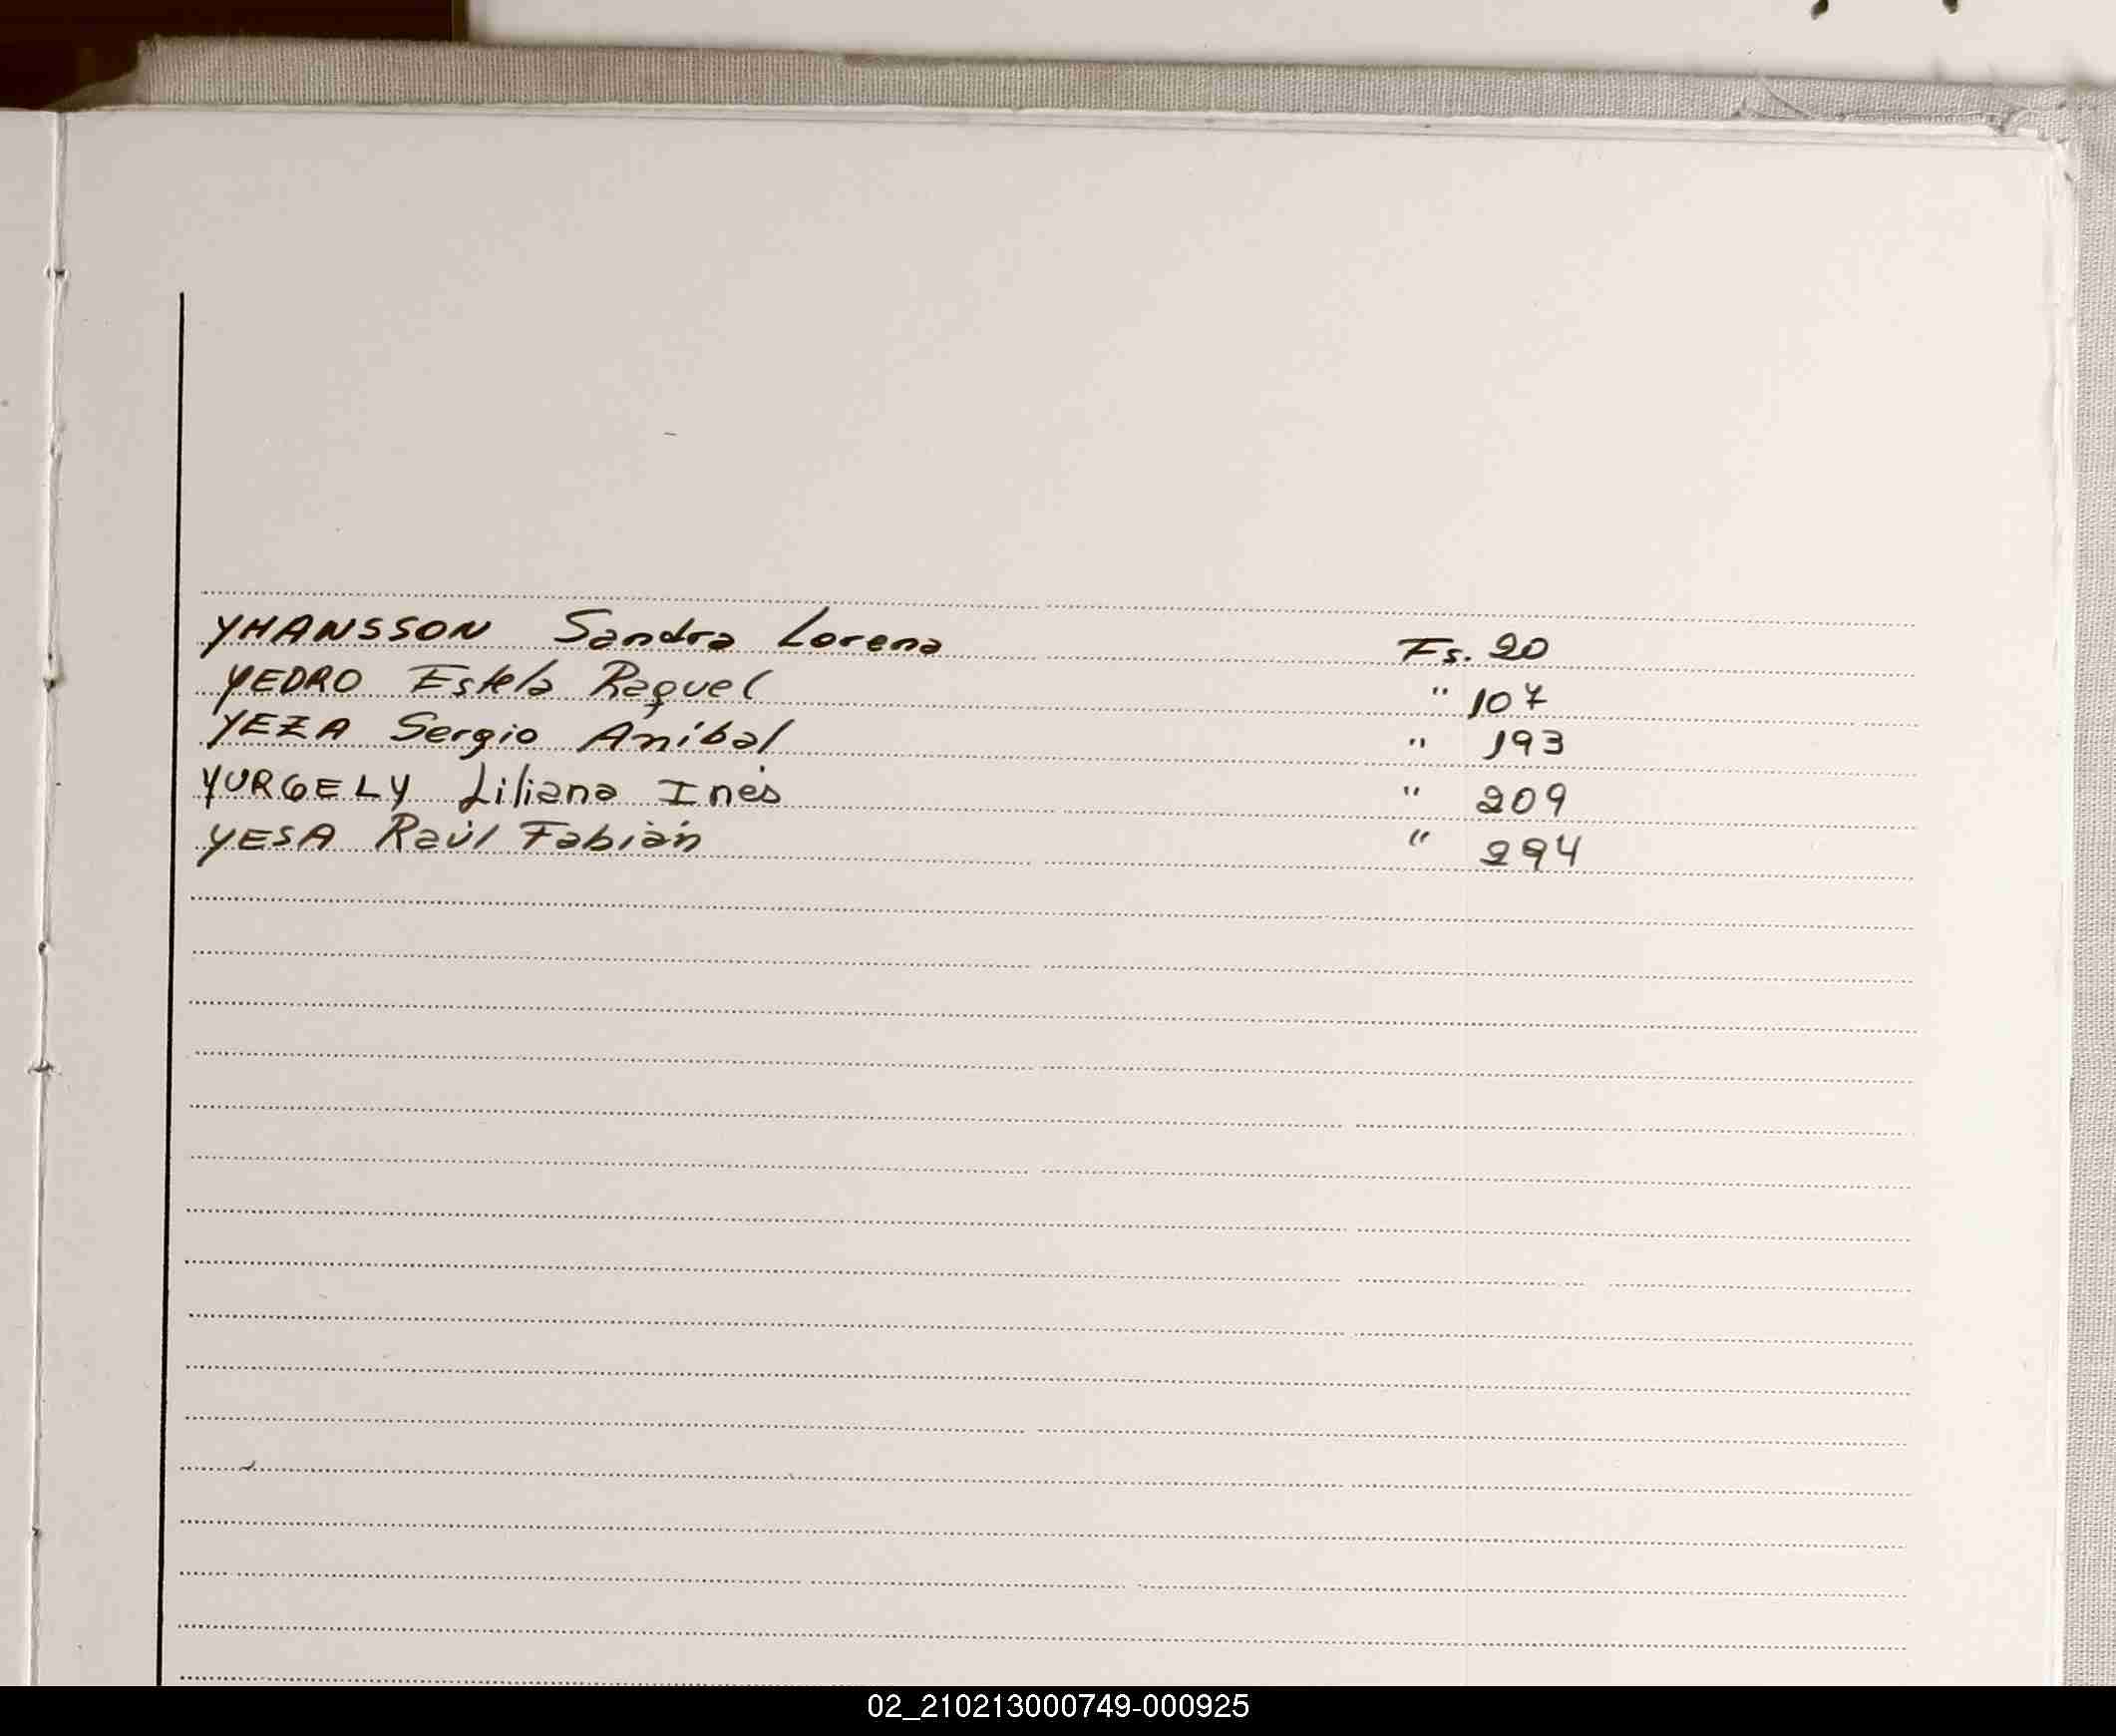 YHANSSON Sandra Lorena Fs. 20
YEDRO Estela Raquel " 107
YEZA Sergio Aníbal " 193
YURGELY Liliana Inés " 209
YESA Raúl Fabián " 294
02_210213000749-000925